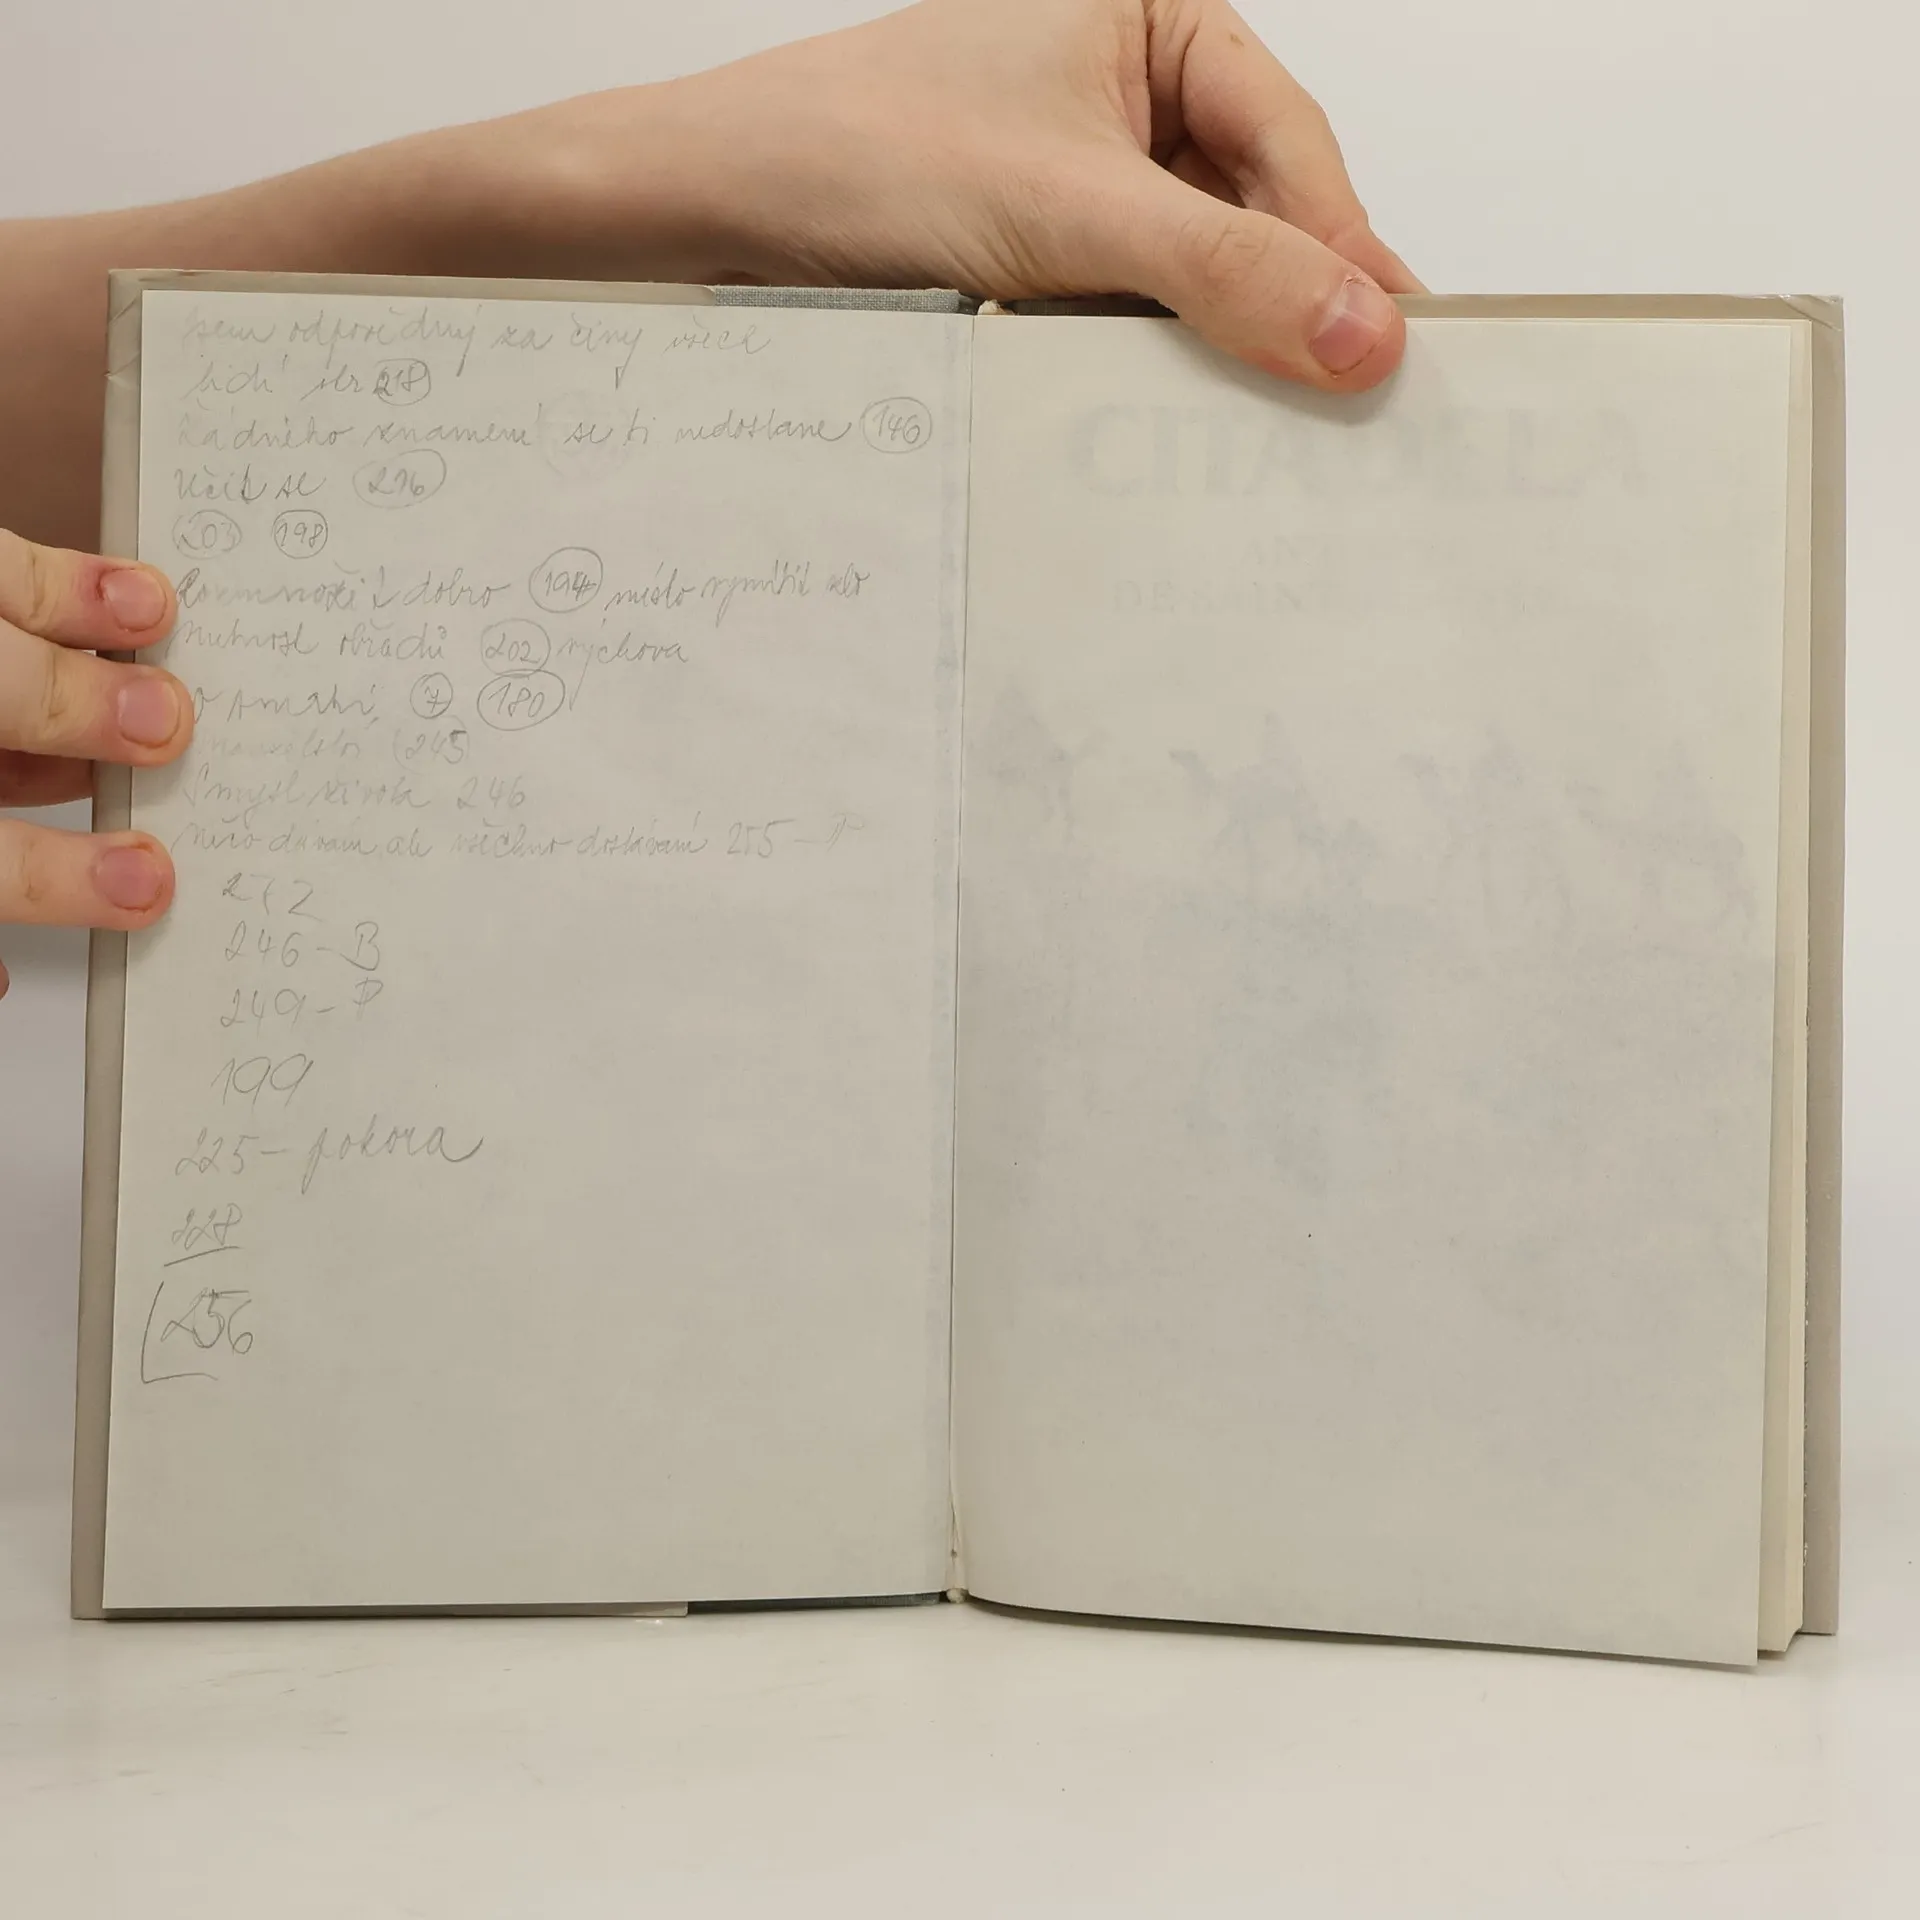 Jsem odpovědný za činy všech
lidí str 218
Žádného znamení se ti nedostane 146
Učit se 216
203 198
Rozmnožit dobro 194 místo vymítit zlo
Nutnost obřadů 202 výchova
O smrti 7 180
245
Smysl života 246
Něco dávám ale všechno dostávám 255 - P
272
246 - B
249 - P
199
225 - pokora
228
256
CITADELA
DE SAINT